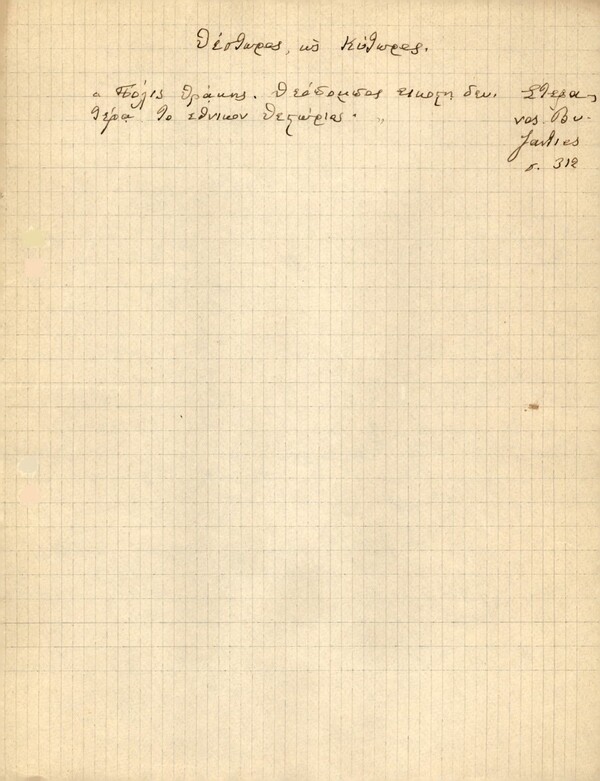 Θέστωρος, ὡς Κύτωρος.
α Πόλις Θράκης. Θεόπομπος εικοστη δευ-
τέρα το εθνικον Θεστώριος. „
Στεφα-
νος Βυ-
ζαντιος
σ. 312